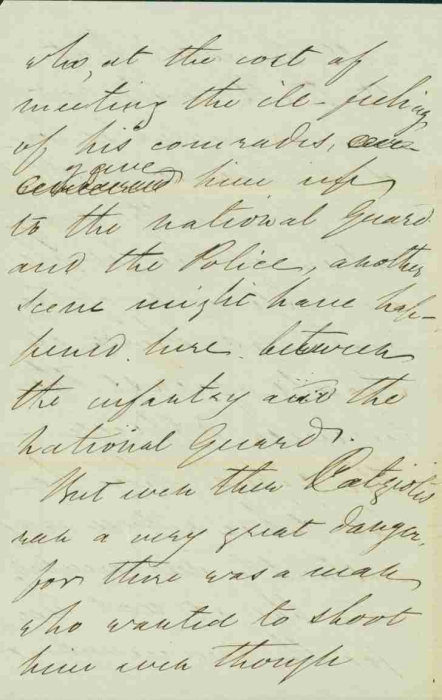 who, at the cost of
meeting the ill-feeling
of his comrades,
gave
him up
to the national Guard
and the Police, another
scene might have hap-
pened here between
the infantry and the
National Guard.
But even then
ran a very great danger,
for there was a man
who wanted to shoot
him even though